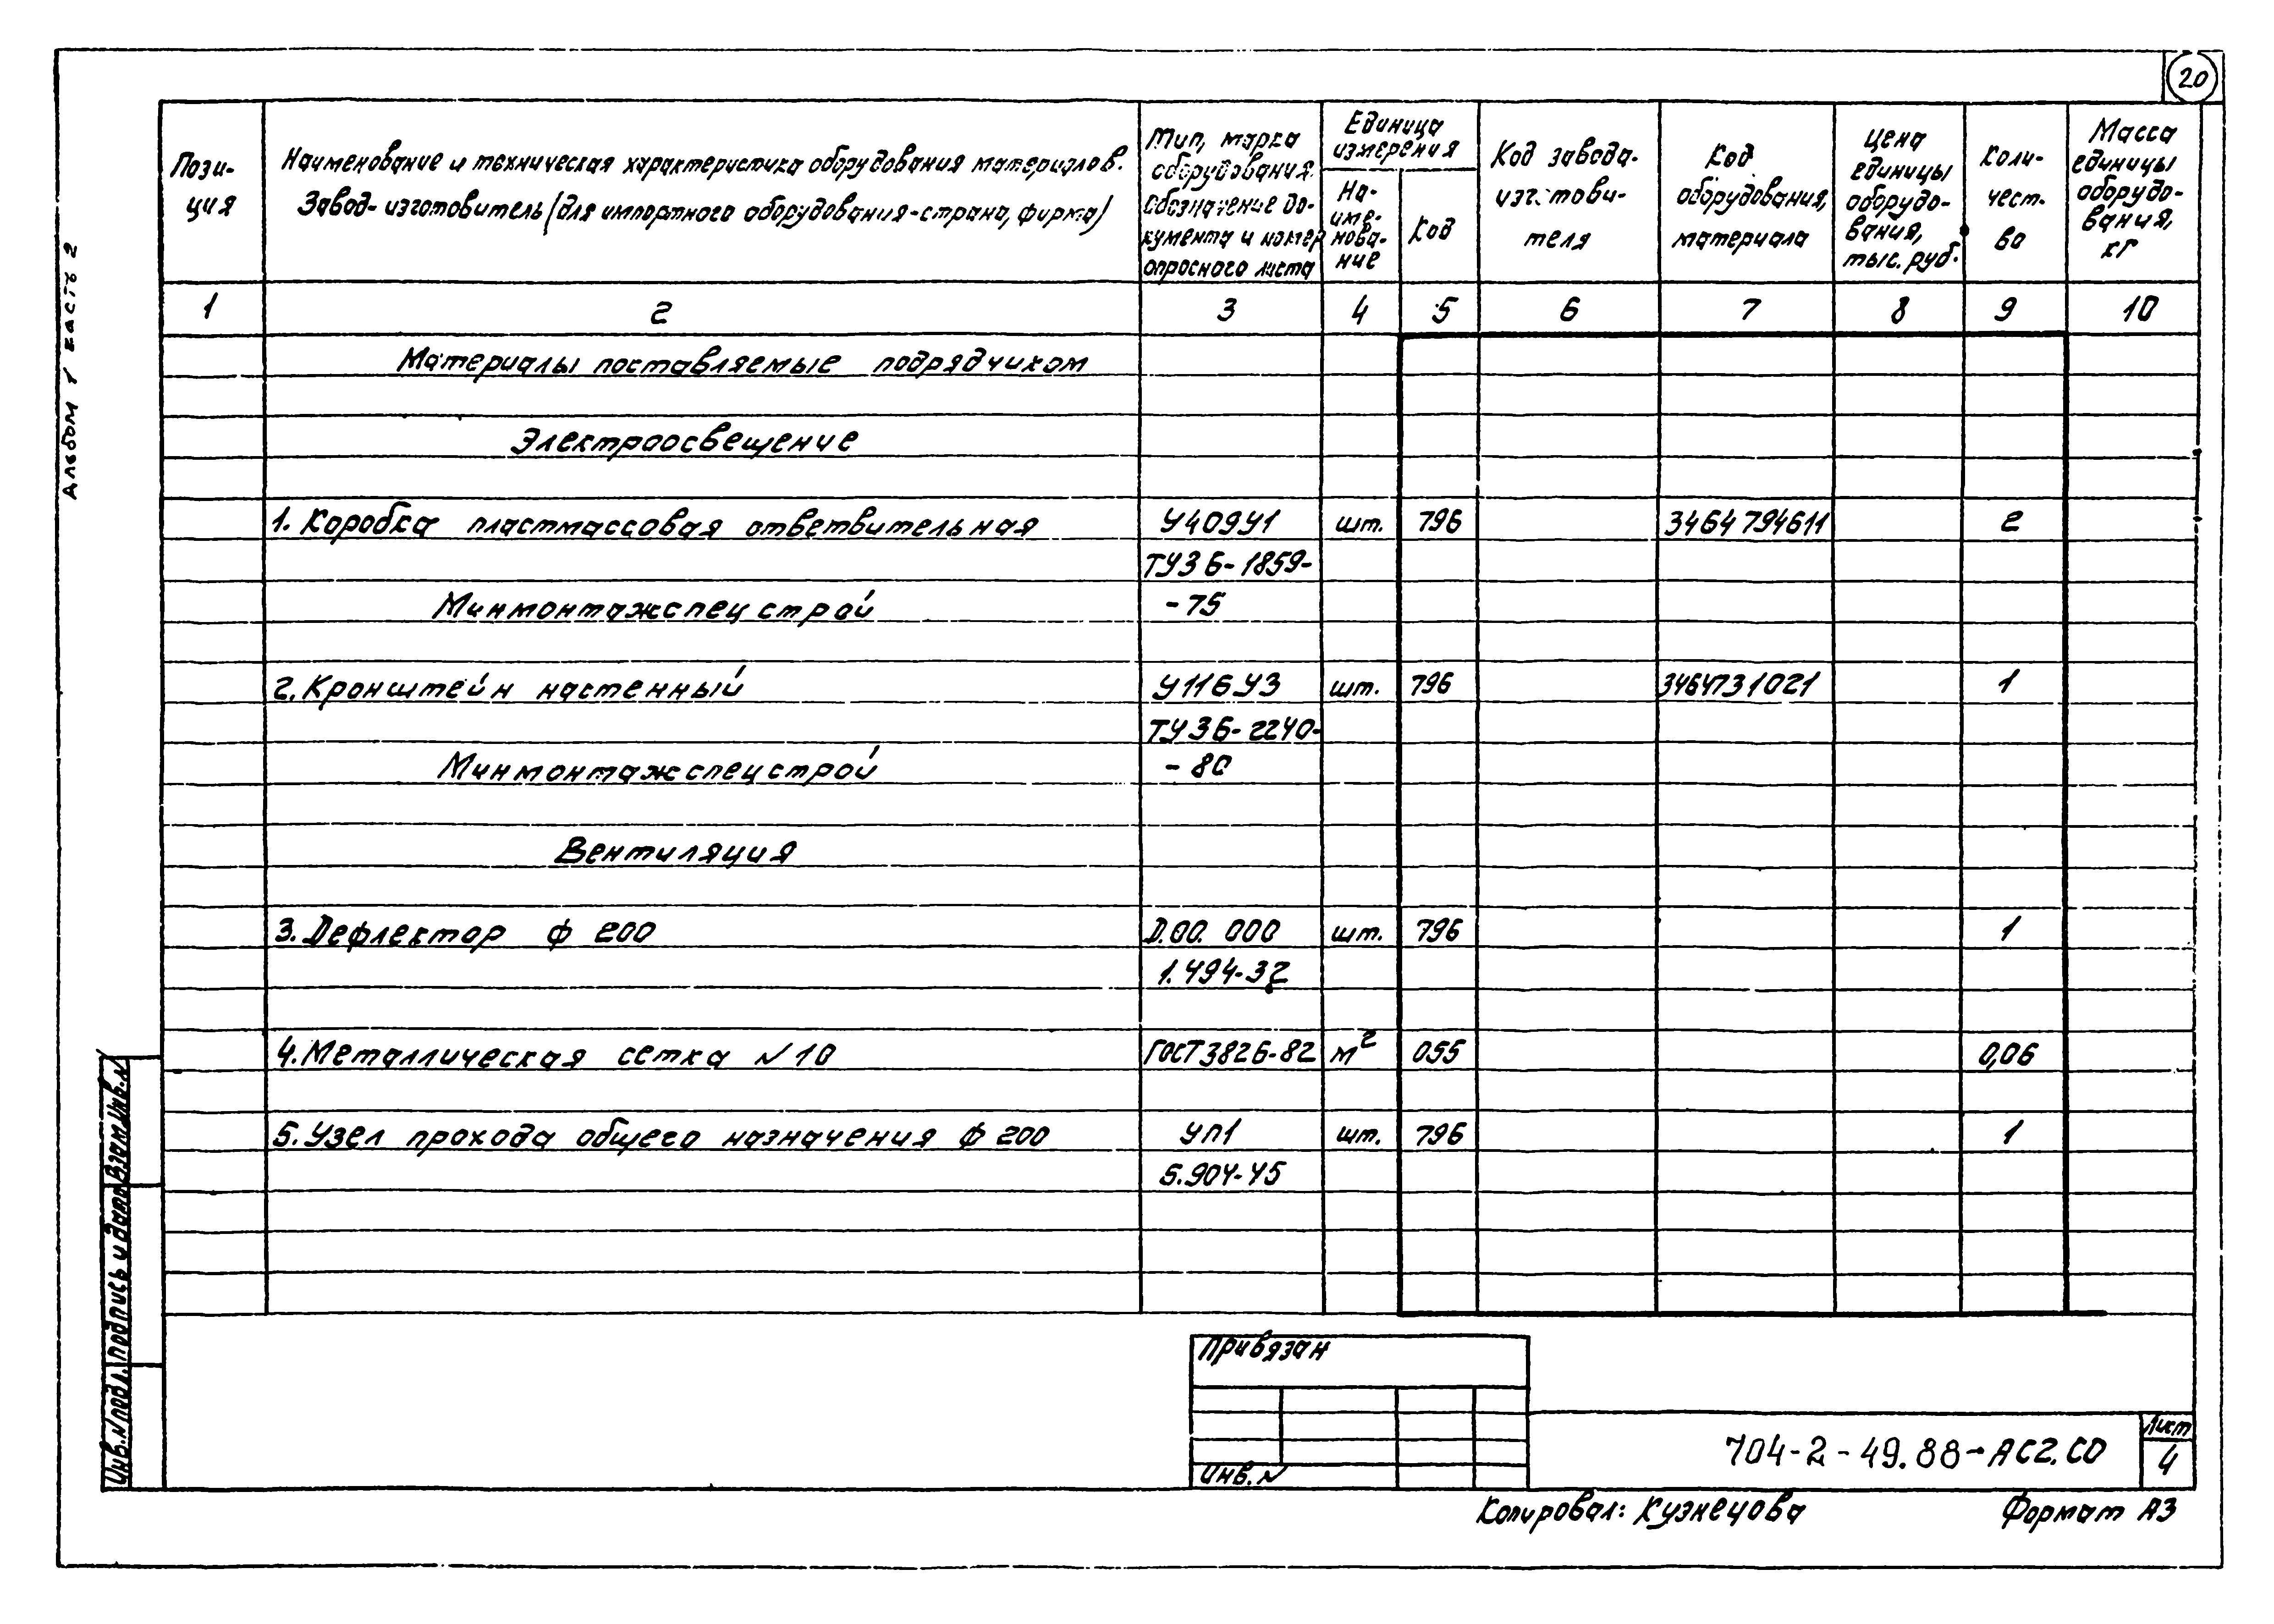 20
Альбом 1 часть 2
Пози-
ция
Наименование и техническая характеристика оборудования материалов.
Завод-изготовитель (для импортного оборудования-страна, фирма)
Тип, марка
оборудования.
Обозначение до-
кумента и номер
опросного листа
Единица
измерения
На-
име-
нова-
ние
Код
Код завода-
изготови-
теля
Код
оборудования,
материала
Цена
единицы
оборудо-
вания,
тыс. руб.
Коли-
чест-
во
Масса
единицы
оборудо-
вания,
кг
1 2 3 4 5 6 7 8 9 10
Материалы поставляемые подрядчиком
Электроосвещение
1. Коробка пластмассовая ответвительная У409У1 шт. 796 3464794611 2
ТУ36-1859-
Минмонтажспецстрой -75
2. Кронштейн настенный У116У3 шт. 796 3464731021 1
ТУ36-2240-
Минмонтажспецстрой -80
Вентиляция
3. Дефлектор ф 200 Д.00.000 шт. 796 1
1.494-32
4. Металлическая сетка №10 ГОСТ3826-82 м² 055 0,06
5. Узел прохода общего назначения ф 200 УП1 шт. 796 1
5.904-45
Взам.инв.№
Подпись и дата
Инв.№подл.
Привязан
Инв.№
704-2-49.88-АС2.СО
Лист
4
Копировал: Кузнецова Формат А3